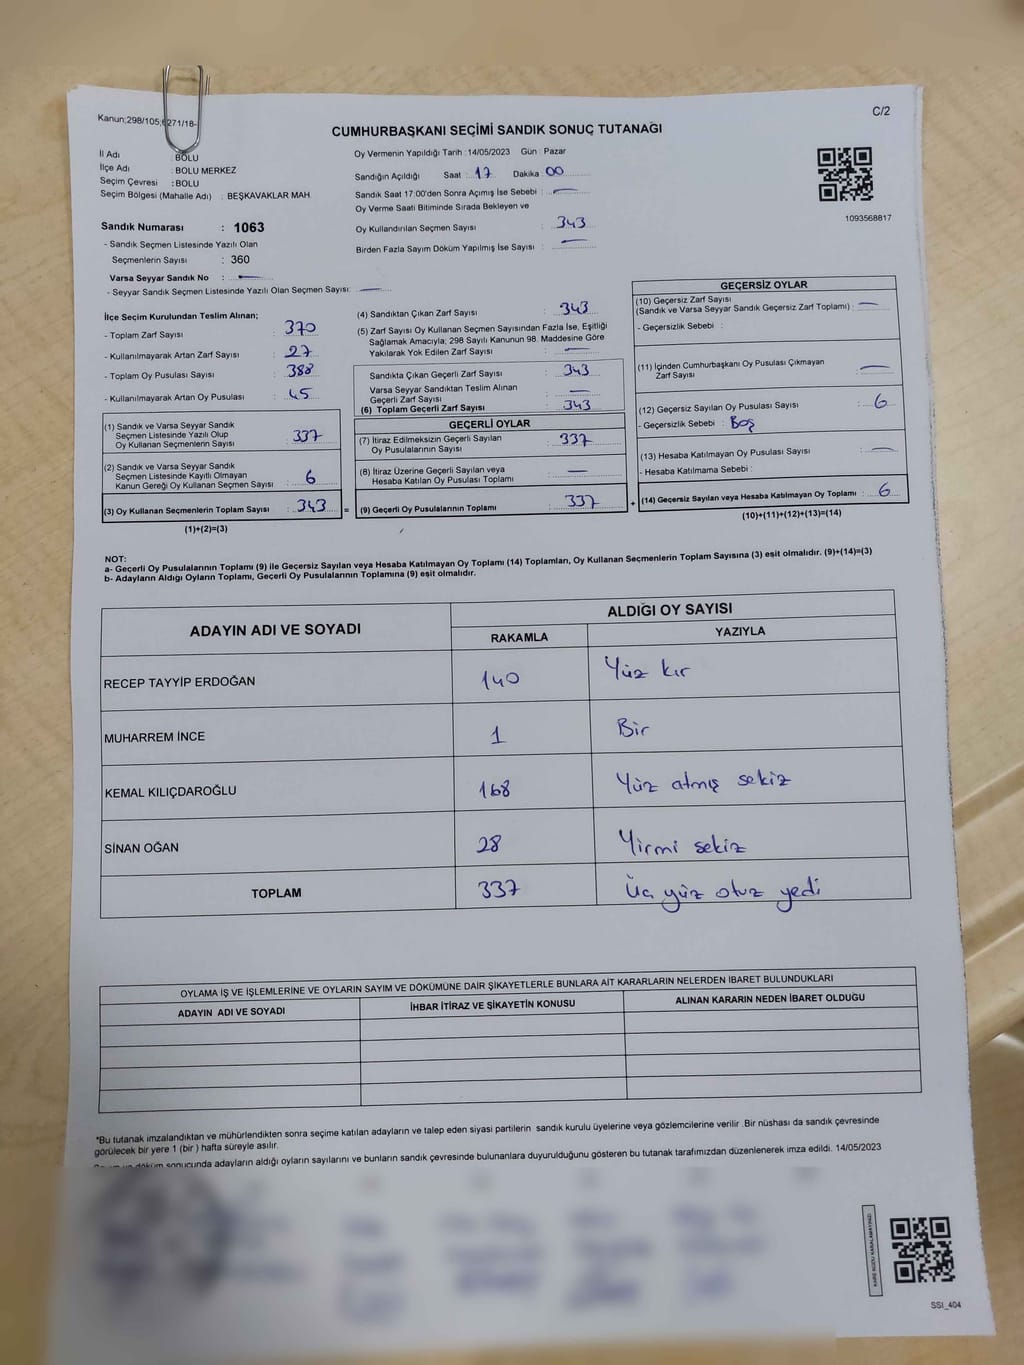 Kanun;298/105;6271/18-
C/2
CUMHURBAŞKANI SEÇİMİ SANDIK SONUÇ TUTANAĞI
İl Adı : BOLU
İlçe Adı : BOLU MERKEZ
Seçim Çevresi : BOLU
Seçim Bölgesi (Mahalle Adı) : BEŞKAVAKLAR MAH.
Oy Vermenin Yapıldığı Tarih : 14/05/2023 Gün : Pazar
Sandığın Açıldığı Saat : 17 Dakika : 00
Sandık Saat 17:00'den Sonra Açımış İse Sebebi : —
Oy Verme Saati Bitiminde Sırada Bekleyen ve
Oy Kullandırılan Seçmen Sayısı : 343
Birden Fazla Sayım Döküm Yapılmış İse Sayısı : —
1093568817
Sandık Numarası : 1063
- Sandık Seçmen Listesinde Yazılı Olan
Seçmenlerin Sayısı : 360
Varsa Seyyar Sandık No : —
- Seyyar Sandık Seçmen Listesinde Yazılı Olan Seçmen Sayısı: —
İlçe Seçim Kurulundan Teslim Alınan;
- Toplam Zarf Sayısı : 370
- Kullanılmayarak Artan Zarf Sayısı : 27
- Toplam Oy Pusulası Sayısı : 388
- Kullanılmayarak Artan Oy Pusulası : 45
(1) Sandık ve Varsa Seyyar Sandık
Seçmen Listesinde Yazılı Olup
Oy Kullanan Seçmenlerin Sayısı : 337
(2) Sandık ve Varsa Seyyar Sandık
Seçmen Listesinde Kayıtlı Olmayan
Kanun Gereği Oy Kullanan Seçmen Sayısı : 6
(3) Oy Kullanan Seçmenlerin Toplam Sayısı : 343 =
(1)+(2)=(3)
(4) Sandıktan Çıkan Zarf Sayısı : 343
(5) Zarf Sayısı Oy Kullanan Seçmen Sayısından Fazla İse, Eşitliği
Sağlamak Amacıyla; 298 Sayılı Kanunun 98. Maddesine Göre
Yakılarak Yok Edilen Zarf Sayısı : —
Sandıkta Çıkan Geçerli Zarf Sayısı : 343
Varsa Seyyar Sandıktan Teslim Alınan
Geçerli Zarf Sayısı : —
(6) Toplam Geçerli Zarf Sayısı : 343
GEÇERLİ OYLAR
(7) İtiraz Edilmeksizin Geçerli Sayılan
Oy Pusulalarının Sayısı : 337
(8) İtiraz Üzerine Geçerli Sayılan veya
Hesaba Katılan Oy Pusulası Toplamı : —
(9) Geçerli Oy Pusulalarının Toplamı : 337 +
GEÇERSİZ OYLAR
(10) Geçersiz Zarf Sayısı
(Sandık ve Varsa Seyyar Sandık Geçersiz Zarf Toplamı) : —
- Geçersizlik Sebebi :
(11) İçinden Cumhurbaşkanı Oy Pusulası Çıkmayan
Zarf Sayısı : —
(12) Geçersiz Sayılan Oy Pusulası Sayısı : 6
- Geçersizlik Sebebi : Boş
(13) Hesaba Katılmayan Oy Pusulası Sayısı : —
- Hesaba Katılmama Sebebi :
(14) Geçersiz Sayılan veya Hesaba Katılmayan Oy Toplamı : 6
(10)+(11)+(12)+(13)=(14)
NOT:
a- Geçerli Oy Pusulalarının Toplamı (9) ile Geçersiz Sayılan veya Hesaba Katılmayan Oy Toplamı (14) Toplamları, Oy Kullanan Seçmenlerin Toplam Sayısına (3) eşit olmalıdır. (9)+(14)=(3)
b- Adayların Aldığı Oyların Toplamı, Geçerli Oy Pusulalarının Toplamına (9) eşit olmalıdır.
ADAYIN ADI VE SOYADI
ALDIĞI OY SAYISI
RAKAMLA YAZIYLA
RECEP TAYYİP ERDOĞAN 140 Yüz kır
MUHARREM İNCE 1 Bir
KEMAL KILIÇDAROĞLU 168 Yüz atmış sekiz
SİNAN OĞAN 28 Yirmi sekiz
TOPLAM 337 Üç yüz otuz yedi
OYLAMA İŞ VE İŞLEMLERİNE VE OYLARIN SAYIM VE DÖKÜMÜNE DAİR ŞİKAYETLERLE BUNLARA AİT KARARLARIN NELERDEN İBARET BULUNDUKLARI
ADAYIN ADI VE SOYADI İHBAR İTİRAZ VE ŞİKAYETİN KONUSU ALINAN KARARIN NEDEN İBARET OLDUĞU
*Bu tutanak imzalandıktan ve mühürlendikten sonra seçime katılan adayların ve talep eden siyasi partilerin sandık kurulu üyelerine veya gözlemcilerine verilir .Bir nüshası da sandık çevresinde
görülecek bir yere 1 (bir ) hafta süreyle asılır.
döküm sonucunda adayların aldığı oyların sayılarını ve bunların sandık çevresinde bulunanlara duyurulduğunu gösteren bu tutanak tarafımızdan düzenlenerek imza edildi. 14/05/2023
SSI_404